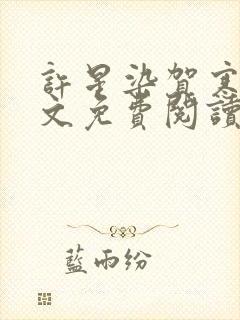 許星染賀
文免費閱讀
藍雨紛